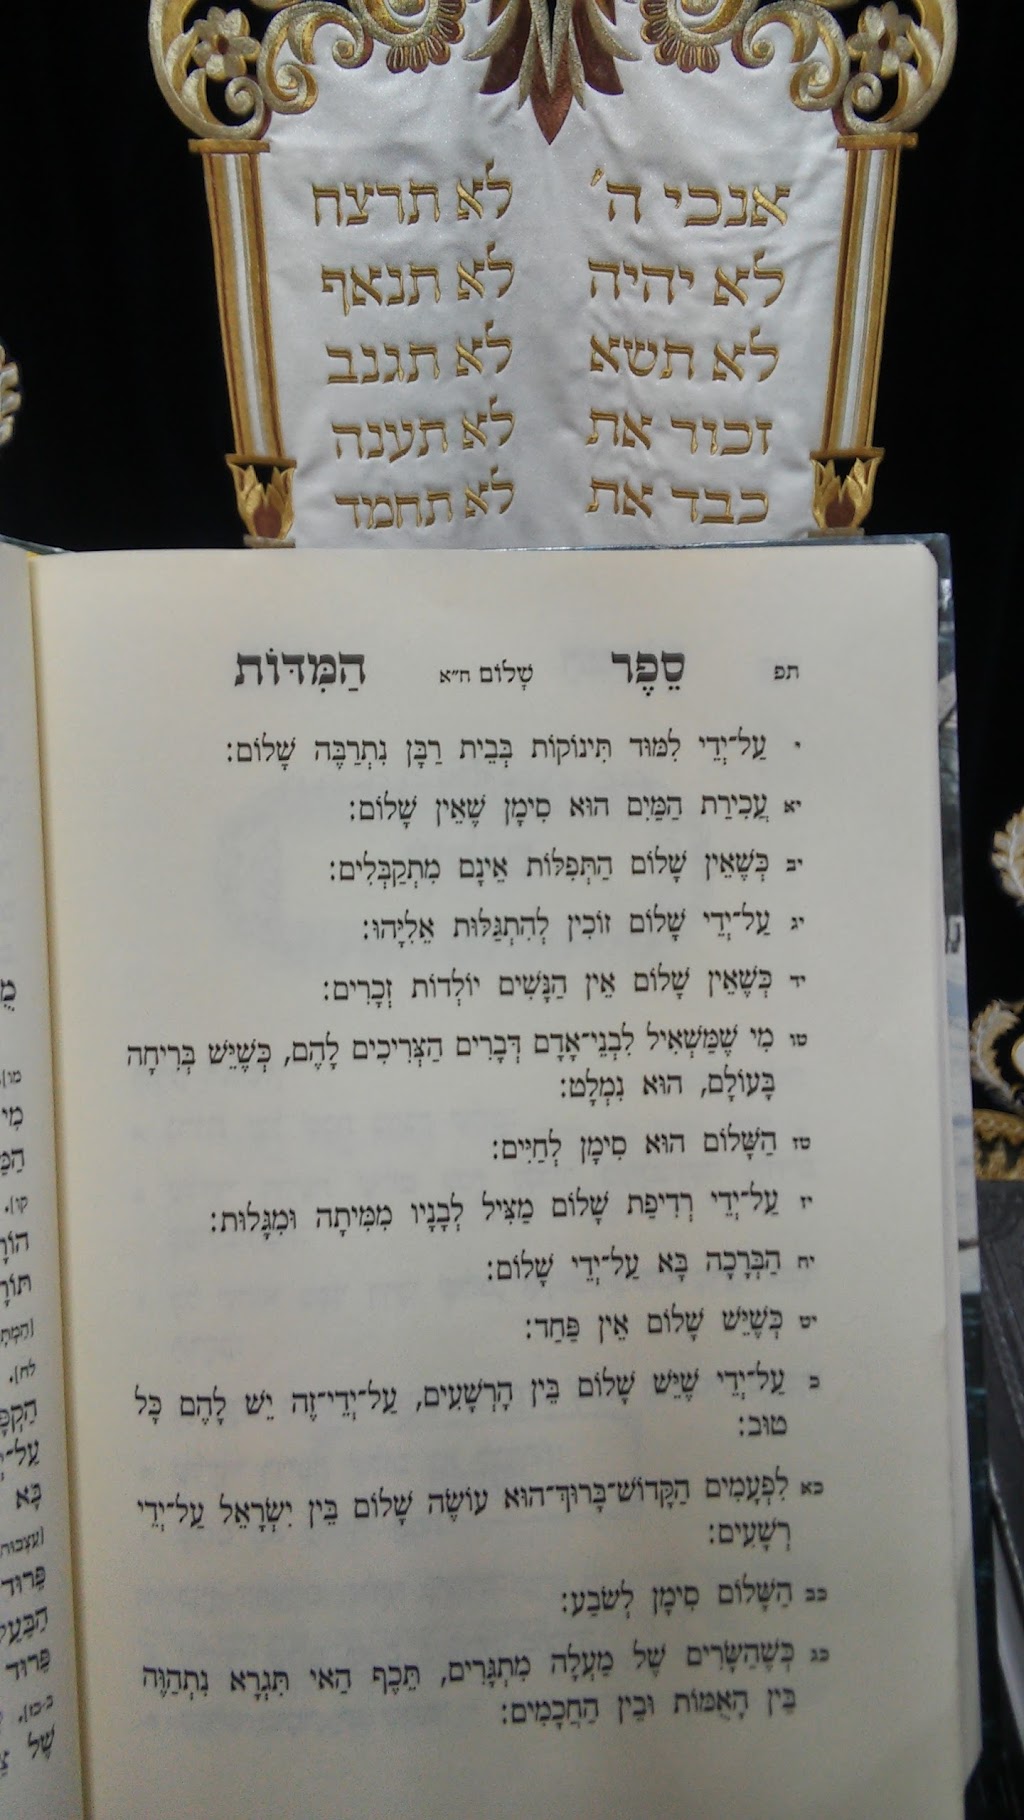 אנכי ה'
לא יהיה
לא תשא
זכור את
כבד את
לא תרצח
לא תנאף
לא תגנב
לא תענה
לא תחמד
תפ סֵפֶר שָׁלוֹם ח״א הַמִּדּוֹת
י עַל־יְדֵי לִמּוּד תִּינוֹקוֹת בְּבֵית רַבָּן נִתְרַבֶּה שָׁלוֹם:
יא עֲכִירַת הַמַּיִם הוּא סִימָן שֶׁאֵין שָׁלוֹם:
יב כְּשֶׁאֵין שָׁלוֹם הַתְּפִלּוֹת אֵינָם מִתְקַבְּלִים:
יג עַל־יְדֵי שָׁלוֹם זוֹכִין לְהִתְגַּלּוּת אֵלִיָּהוּ:
יד כְּשֶׁאֵין שָׁלוֹם אֵין הַנָּשִׁים יוֹלְדוֹת זְכָרִים:
טו מִי שֶׁמַּשְׁאִיל לִבְנֵי־אָדָם דְּבָרִים הַצְּרִיכִים לָהֶם, כְּשֶׁיֵּשׁ בְּרִיחָה
בָּעוֹלָם, הוּא נִמְלָט:
טז הַשָּׁלוֹם הוּא סִימָן לְחַיִּים:
יז עַל־יְדֵי רְדִיפַת שָׁלוֹם מַצִּיל לְבָנָיו מִמִּיתָה וּמִגָּלוּת:
יח הַבְּרָכָה בָּא עַל־יְדֵי שָׁלוֹם:
יט כְּשֶׁיֵּשׁ שָׁלוֹם אֵין פַּחַד:
כ עַל־יְדֵי שֶׁיֵּשׁ שָׁלוֹם בֵּין הָרְשָׁעִים, עַל־יְדֵי־זֶה יֵשׁ לָהֶם כָּל
טוּב:
כא לִפְעָמִים הַקָּדוֹשׁ־בָּרוּךְ־הוּא עוֹשֶׂה שָׁלוֹם בֵּין יִשְׂרָאֵל עַל־יְדֵי
רְשָׁעִים:
כב הַשָּׁלוֹם סִימָן לְשֹׂבַע:
כג כְּשֶׁהַשָּׂרִים שֶׁל מַעְלָה מִתְגָּרִים, תֵּכֶף הַאי תִּגְרָא נִתְהַוֶּה
בֵּין הָאֻמּוֹת וּבֵין הַחֲכָמִים: